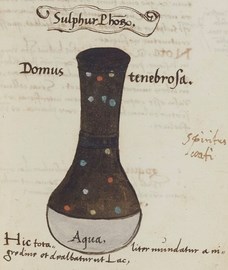 Sulphur Phõo.
Domus tenebrosa.
spiritus
Aqua.
Hic tota- liter mundatur a ni-
gredine et dealbatur ut Lac,